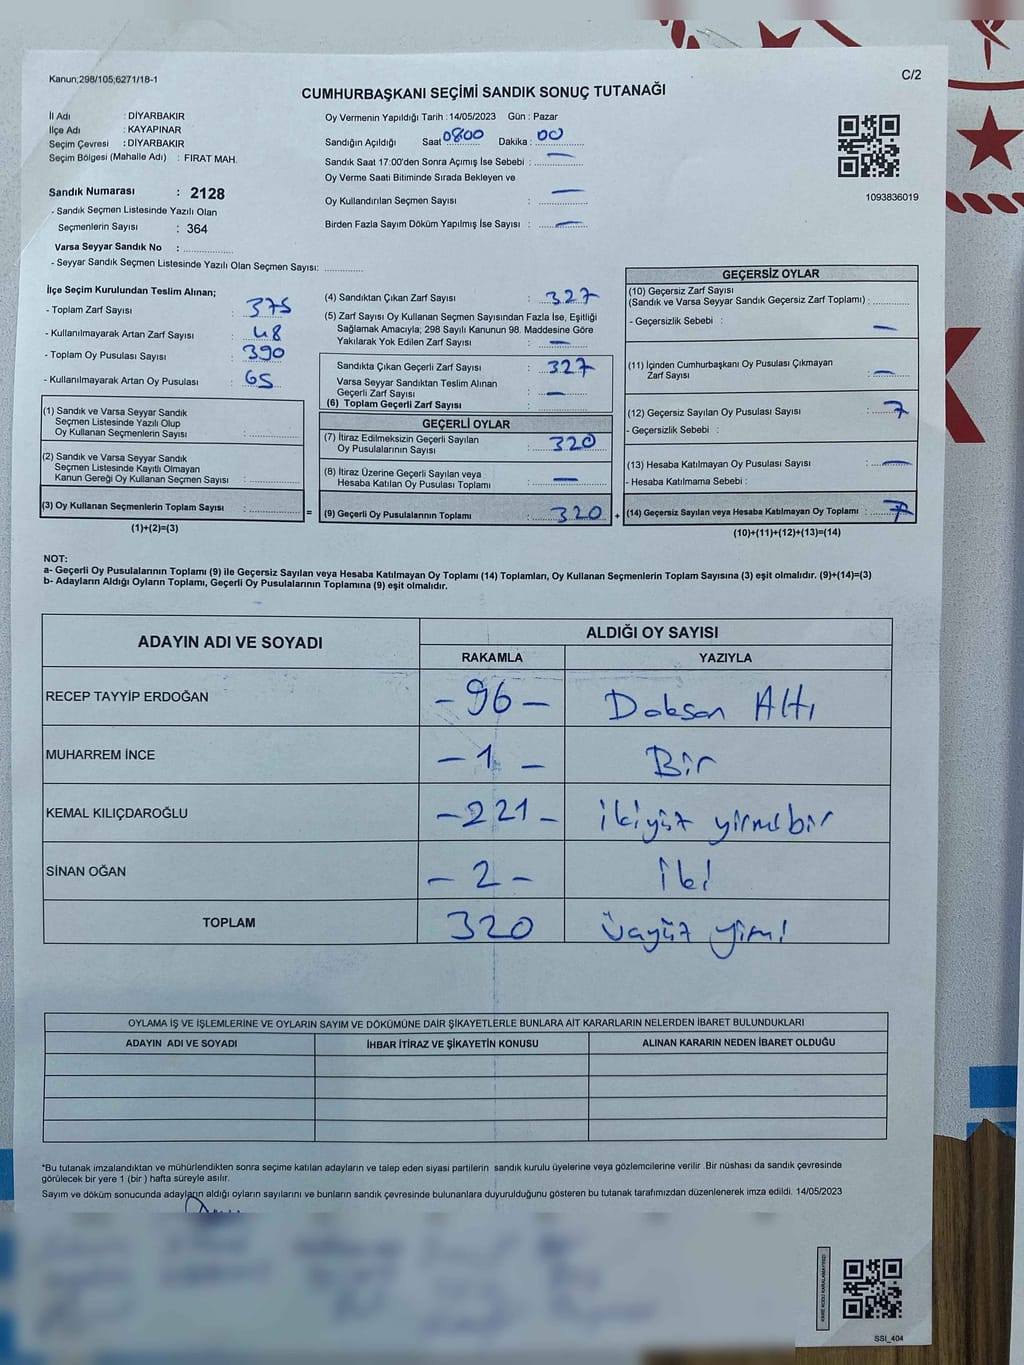 Kanun;298/105;6271/18-1
C/2
CUMHURBAŞKANI SEÇİMİ SANDIK SONUÇ TUTANAĞI
İl Adı : DİYARBAKIR
İlçe Adı : KAYAPINAR
Seçim Çevresi : DİYARBAKIR
Seçim Bölgesi (Mahalle Adı) : FIRAT MAH.
Sandık Numarası : 2128
- Sandık Seçmen Listesinde Yazılı Olan
Seçmenlerin Sayısı : 364
Varsa Seyyar Sandık No :
- Seyyar Sandık Seçmen Listesinde Yazılı Olan Seçmen Sayısı:
Oy Vermenin Yapıldığı Tarih : 14/05/2023 Gün : Pazar
Sandığın Açıldığı Saat : 0800 Dakika : 00
Sandık Saat 17:00'den Sonra Açımış İse Sebebi : —
Oy Verme Saati Bitiminde Sırada Bekleyen ve
Oy Kullandırılan Seçmen Sayısı : —
Birden Fazla Sayım Döküm Yapılmış İse Sayısı : —
1093836019
İlçe Seçim Kurulundan Teslim Alınan;
- Toplam Zarf Sayısı : 375
- Kullanılmayarak Artan Zarf Sayısı : 48
- Toplam Oy Pusulası Sayısı : 390
- Kullanılmayarak Artan Oy Pusulası : 65
(1) Sandık ve Varsa Seyyar Sandık
Seçmen Listesinde Yazılı Olup
Oy Kullanan Seçmenlerin Sayısı :
(2) Sandık ve Varsa Seyyar Sandık
Seçmen Listesinde Kayıtlı Olmayan
Kanun Gereği Oy Kullanan Seçmen Sayısı :
(3) Oy Kullanan Seçmenlerin Toplam Sayısı :
(1)+(2)=(3)
=
(4) Sandıktan Çıkan Zarf Sayısı : 327
(5) Zarf Sayısı Oy Kullanan Seçmen Sayısından Fazla İse, Eşitliği
Sağlamak Amacıyla; 298 Sayılı Kanunun 98. Maddesine Göre
Yakılarak Yok Edilen Zarf Sayısı : —
Sandıkta Çıkan Geçerli Zarf Sayısı : 327
Varsa Seyyar Sandıktan Teslim Alınan
Geçerli Zarf Sayısı : —
(6) Toplam Geçerli Zarf Sayısı :
GEÇERLİ OYLAR
(7) İtiraz Edilmeksizin Geçerli Sayılan
Oy Pusulalarının Sayısı : 320
(8) İtiraz Üzerine Geçerli Sayılan veya
Hesaba Katılan Oy Pusulası Toplamı : —
(9) Geçerli Oy Pusulalarının Toplamı : 320
+
GEÇERSİZ OYLAR
(10) Geçersiz Zarf Sayısı
(Sandık ve Varsa Seyyar Sandık Geçersiz Zarf Toplamı) :
- Geçersizlik Sebebi : —
(11) İçinden Cumhurbaşkanı Oy Pusulası Çıkmayan
Zarf Sayısı : —
(12) Geçersiz Sayılan Oy Pusulası Sayısı : 7
- Geçersizlik Sebebi :
(13) Hesaba Katılmayan Oy Pusulası Sayısı : —
- Hesaba Katılmama Sebebi :
(14) Geçersiz Sayılan veya Hesaba Katılmayan Oy Toplamı : 7
(10)+(11)+(12)+(13)=(14)
NOT:
a- Geçerli Oy Pusulalarının Toplamı (9) ile Geçersiz Sayılan veya Hesaba Katılmayan Oy Toplamı (14) Toplamları, Oy Kullanan Seçmenlerin Toplam Sayısına (3) eşit olmalıdır. (9)+(14)=(3)
b- Adayların Aldığı Oyların Toplamı, Geçerli Oy Pusulalarının Toplamına (9) eşit olmalıdır.
ADAYIN ADI VE SOYADI ALDIĞI OY SAYISI
RAKAMLA YAZIYLA
RECEP TAYYİP ERDOĞAN – 96 – Doksan Altı
MUHARREM İNCE – 1 – Bir
KEMAL KILIÇDAROĞLU – 221 – ikiyüz yirmibir
SİNAN OĞAN – 2 – iki
TOPLAM 320 üçyüz yirmi
OYLAMA İŞ VE İŞLEMLERİNE VE OYLARIN SAYIM VE DÖKÜMÜNE DAİR ŞİKAYETLERLE BUNLARA AİT KARARLARIN NELERDEN İBARET BULUNDUKLARI
ADAYIN ADI VE SOYADI İHBAR İTİRAZ VE ŞİKAYETİN KONUSU ALINAN KARARIN NEDEN İBARET OLDUĞU
*Bu tutanak imzalandıktan ve mühürlendikten sonra seçime katılan adayların ve talep eden siyasi partilerin sandık kurulu üyelerine veya gözlemcilerine verilir .Bir nüshası da sandık çevresinde
görülecek bir yere 1 (bir ) hafta süreyle asılır.
Sayım ve döküm sonucunda adayların aldığı oyların sayılarını ve bunların sandık çevresinde bulunanlara duyurulduğunu gösteren bu tutanak tarafımızdan düzenlenerek imza edildi. 14/05/2023
KARE KODU KARALAMAYINIZ!
SSI_404